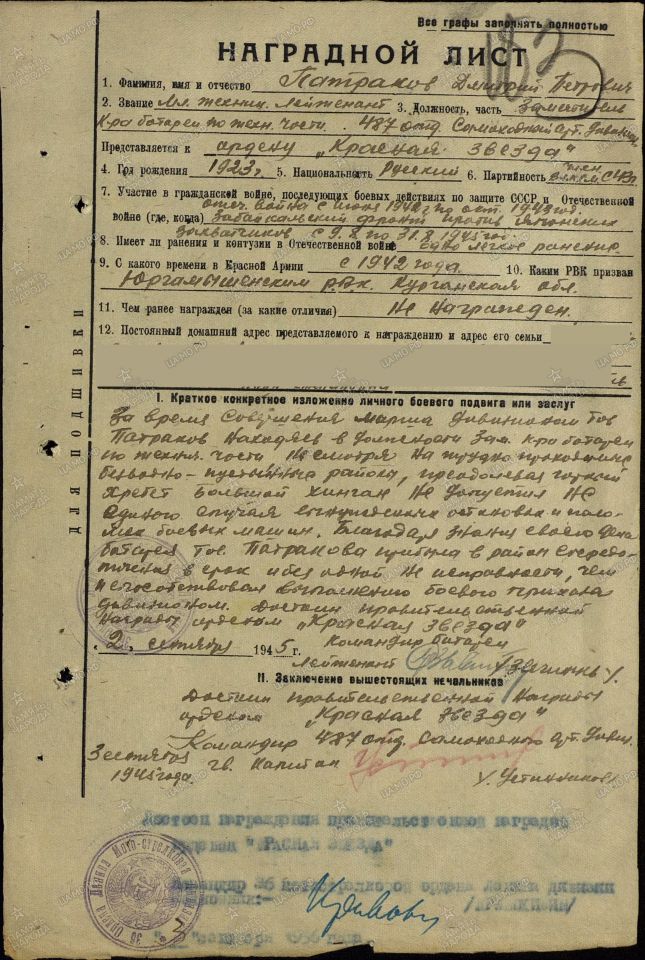 Все графы заполнять полностью
НАГРАДНОЙ ЛИСТ
1. Фамилия, имя и отчество Патраков Дмитрий Петрович
2. Звание Мл. техник лейтенант 3. Должность, часть Заместитель
К-ра батареи по техн. части. 487 отд. Самоходный арт. дивизион
Представляется к ордену "Красная звезда"
4. Год рождения 1923 г. 5. Национальность Русский 6. Партийность член ВЛКСМ с 43 г.
7. Участие в гражданской войне, последующих боевых действиях по защите СССР и Отечественной
отеч. война с июня по 1943 год.
войне (где, когда) Забайкальский фронт против японских
захватчиков с 9.8 по 31.8 1945 год.
8. Имеет ли ранения и контузии в Отечественной войне одно легкое ранение
9. С какого времени в Красной Армии с 1942 года 10. Каким РВК призван
Юргамышенским рвк. Курганская обл.
11. Чем ранее награжден (за какие отличия) Не награжден.
12. Постоянный домашний адрес представляемого к награждению и адрес его семьи
ДЛЯ ПОДШИВКИ
I. Краткое конкретное изложение личного боевого подвига или заслуг
За время совершения марша дивизионом тов
Патраков находясь в должности зам. к-ра батареи
по техн. части Несмотря на трудно проходимые
безводно-пустынные района, преодолевая горный
хребет Большой Хинган не допустил не
единого случая вынужденных остановок и поло-
мок боевых машин. Благодаря знания своего дела
батарея тов. Патракова прибыла в район сосредо-
точения в срок и без одной не исправности, чем
и способствовал выполнению боевого приказа
дивизионом. Достоин правительственной
награды орденом "Красная звезда"
"2" сентября 1945 г. Командир батареи
лейтенант
II. Заключение вышестоящих начальников
Достоин правительственной награды
орденом "Красная звезда"
Командир 487 отд. Самоходного арт. дивиз.
3 сентября
1945 года. гв. капитан
/Устинников/
Достоин награждения правительственной наградой
орденом "КРАСНАЯ ЗВЕЗДА"
Командир 36 мотострелковой ордена Ленина дивизии